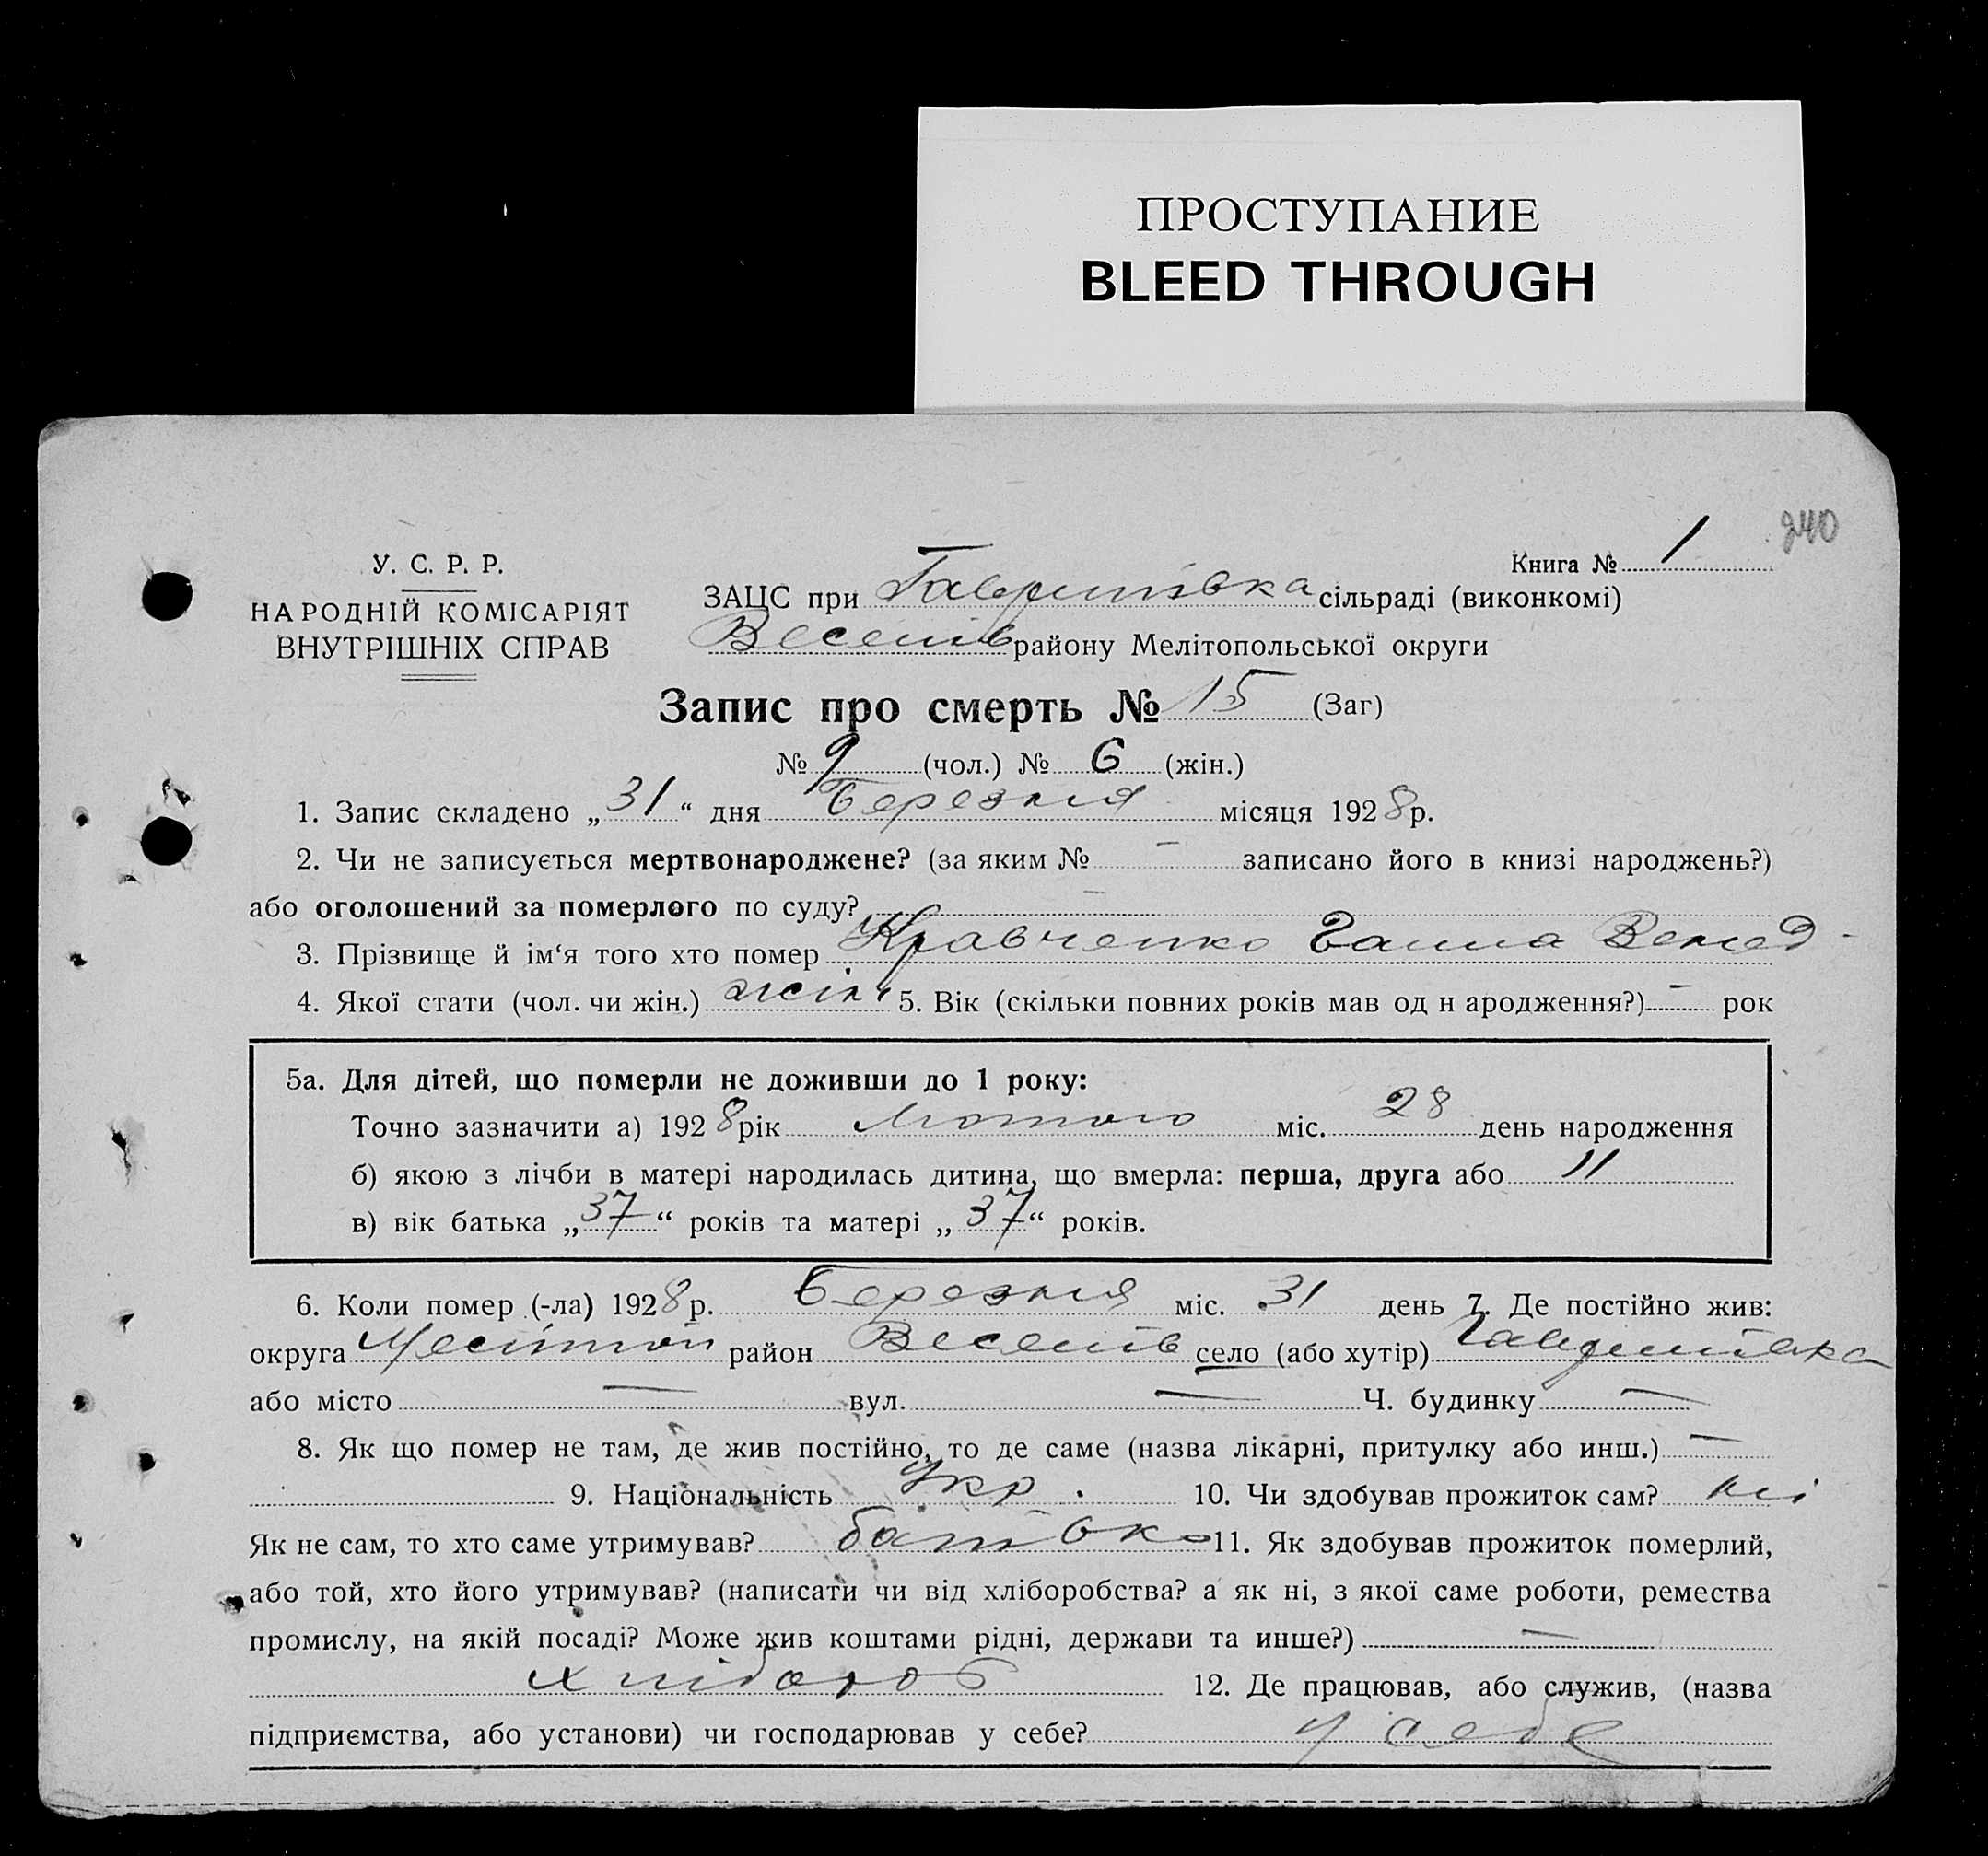 ПРОСТУПАНИЕ
BLEED THROUGH
240
Книга № 1
У. С. Р. Р.
НАРОДНІЙ КОМІСАРІЯТ
ВНУТРІШНІХ СПРАВ
ЗАЦС при Гаврилівка сільраді (виконкомі)
Веселів району Мелітопольської округи
Запис про смерть № 15 (Заг)
№ 9 (чол.) № 6 (жін.)
1. Запис складено „31“ дня Березня місяця 1928 р.
2. Чи не записується мертвонароджене? (за яким № — записано його в книзі народжень?)
або оголошений за померлого по суду? —
3. Прізвище й ім‘я того хто помер Кравченко Ганна Венед-
4. Якої стати (чол. чи жін.) жін. 5. Вік (скільки повних років мав од н ародження?) — рок
5а. Для дітей, що померли не доживши до 1 року:
Точно зазначити а) 1928 рік Лютого міс. 28 день народження
б) якою з лічби в матері народилась дитина, що вмерла: перша, друга або 11
в) вік батька „37“ років та матері „37“ років.
6. Коли помер (-ла) 1928 р. Березня міс. 31 день 7. Де постійно жив:
округа Мелітоп район Веселів село (або хутір) Гаврилівка
або місто — вул. — Ч. будинку —
8. Як що помер не там, де жив постійно, то де саме (назва лікарні, притулку або инш.) —
9. Національність Укр. 10. Чи здобував прожиток сам? ні
Як не сам, то хто саме утримував? батько 11. Як здобував прожиток померлий,
або той, хто його утримував? (написати чи від хліборобства? а як ні, з якої саме роботи, ремества
промислу, на якій посаді? Може жив коштами рідні, держави та инше?) —
хлібороб 12. Де працював, або служив, (назва
підприємства, або установи) чи господарював у себе? у себе